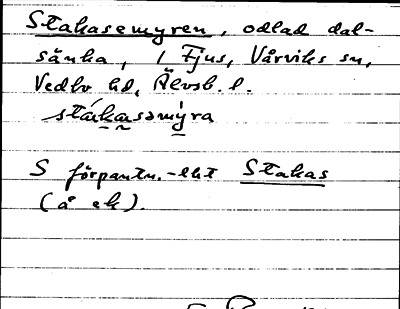 Stakasemyren, odlad dal-
sänka, i Fjus, Vårviks sn,
Vedbo hd, Älvsb. l.
stákasəmýra
S förpantn.-lht Stakas
(å ek).